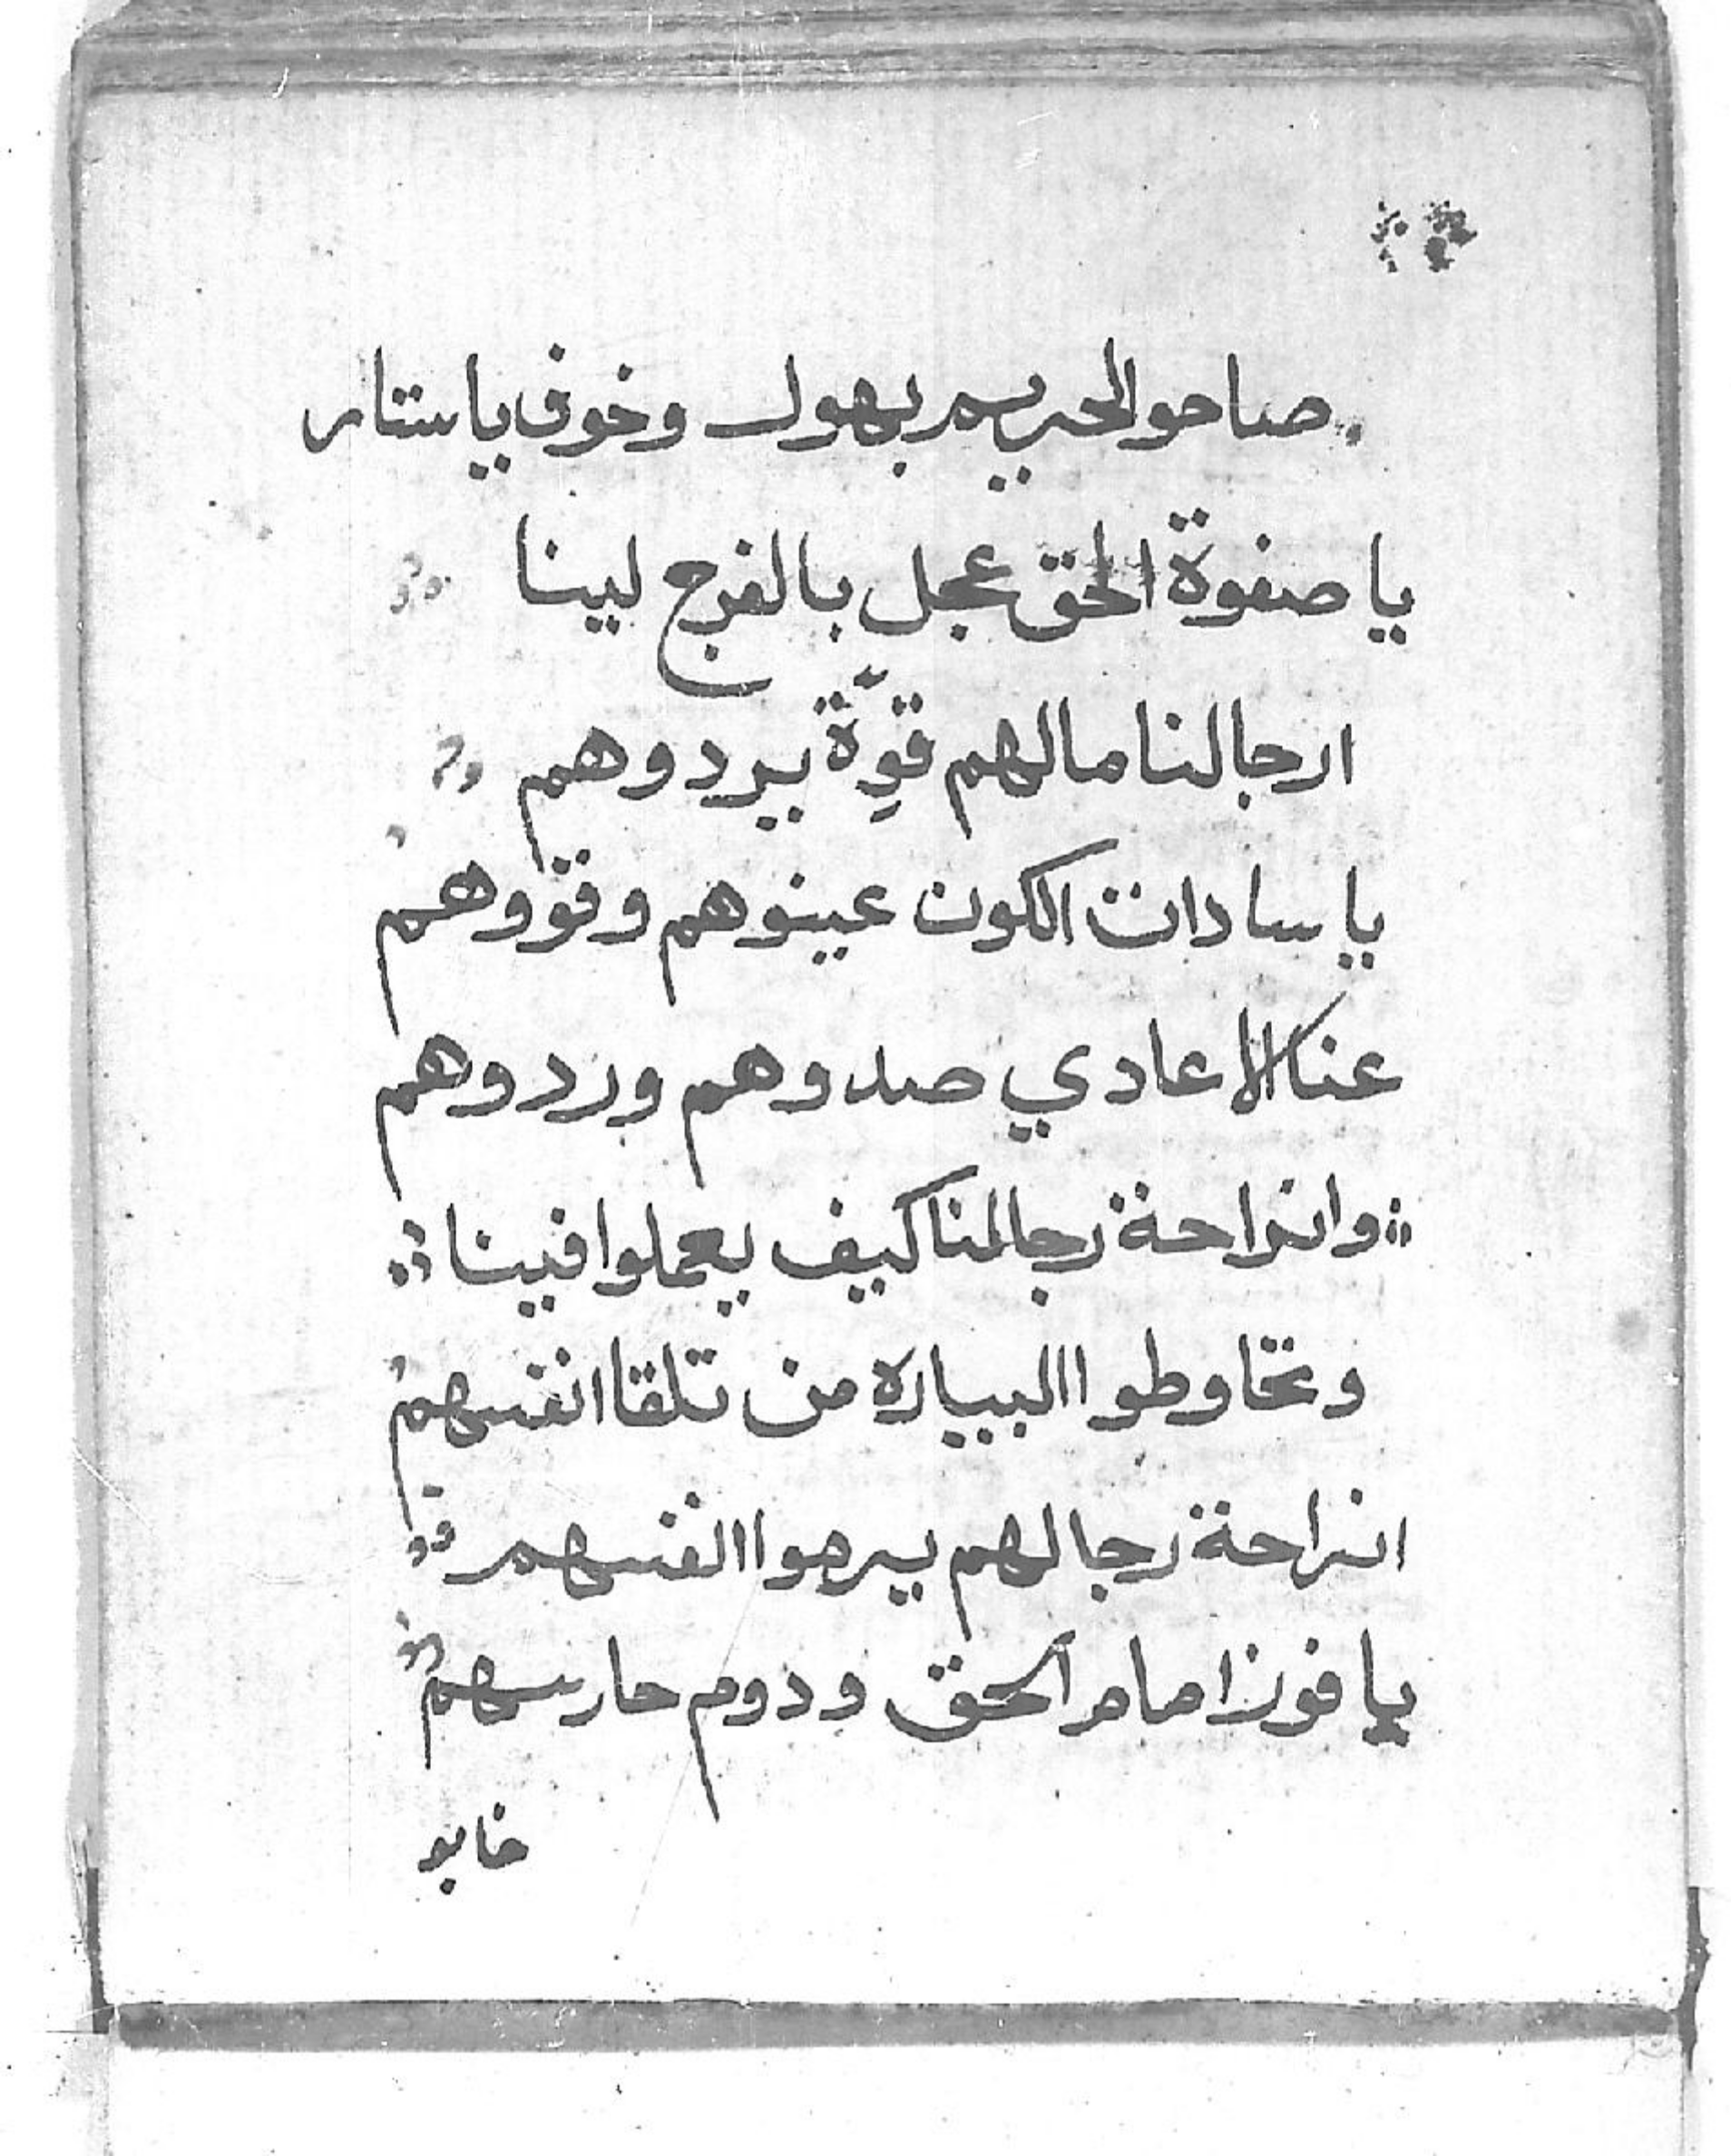 صاحو الحريم بهول وخوف يا ستار
يا صفوة الحق عجل بالفرج لينا
ارجالنا مالهم قوّة يردوهم
يا سادات الكون عينوهم وقووهم
عنا الاعادي صدوهم وردوهم
وانراحة رجالنا كيف يعملوا فينا
وتحاوطوا البياره من تلقا انفسهم
انراحة رجالهم يرموا انفسهم
يا فوز امام الحق ودوم حارسهم